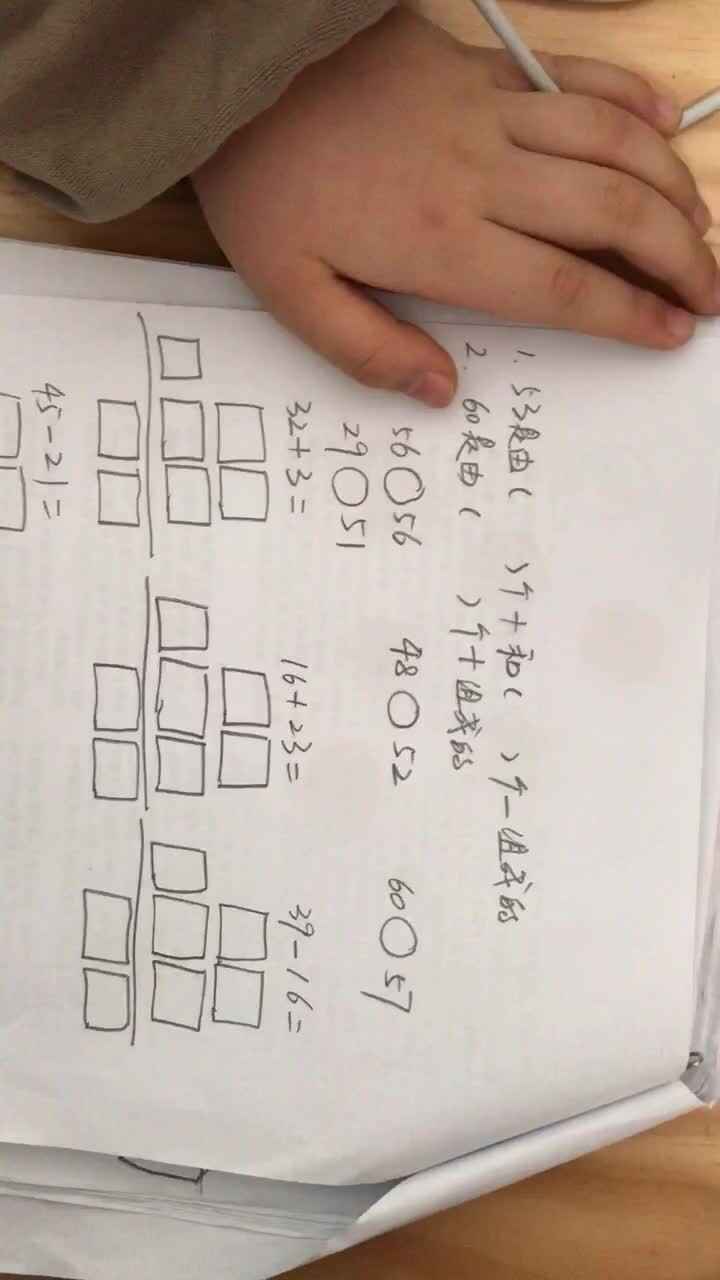 1. 53是由(  )个十和(  )个一组成的
2. 60是由(  )个十组成的
56○56 48○52 60○57
29○51
32+3= 16+23= 39-16=
45-21=